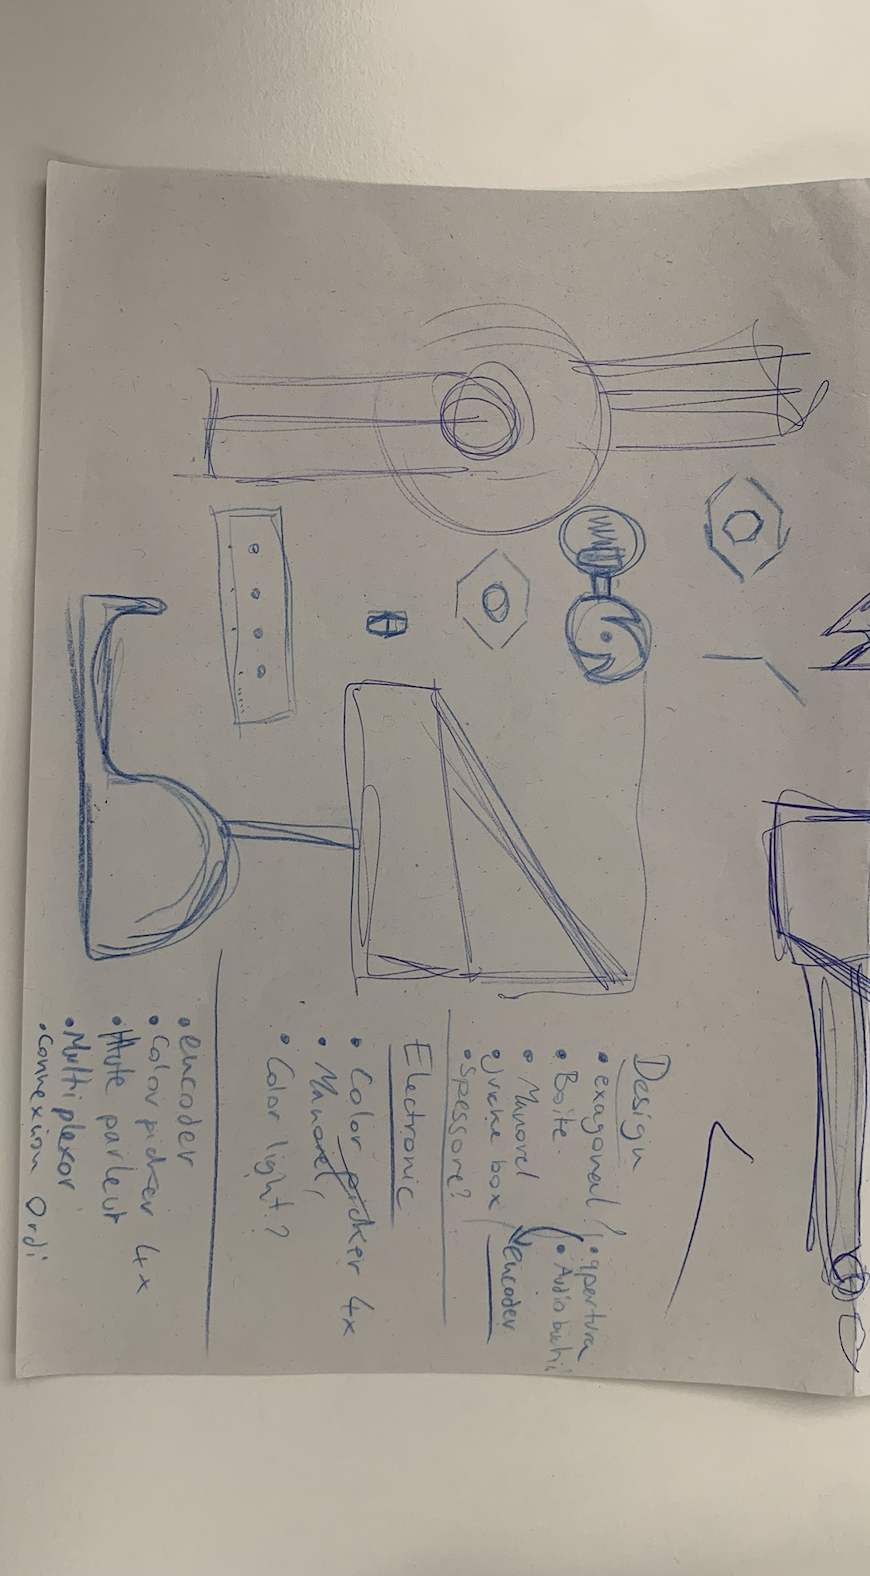 Design
• exagonal
• apertura
• Boite
• Audio buchi
• Manovel
encoder
• box
• Spessore?
Electronic
• Color picker 4x
• Manovel
• Color light?
• encoder
• Color picker 4x
• Hute parleur
• Multiplexor
• Connexion Ordi